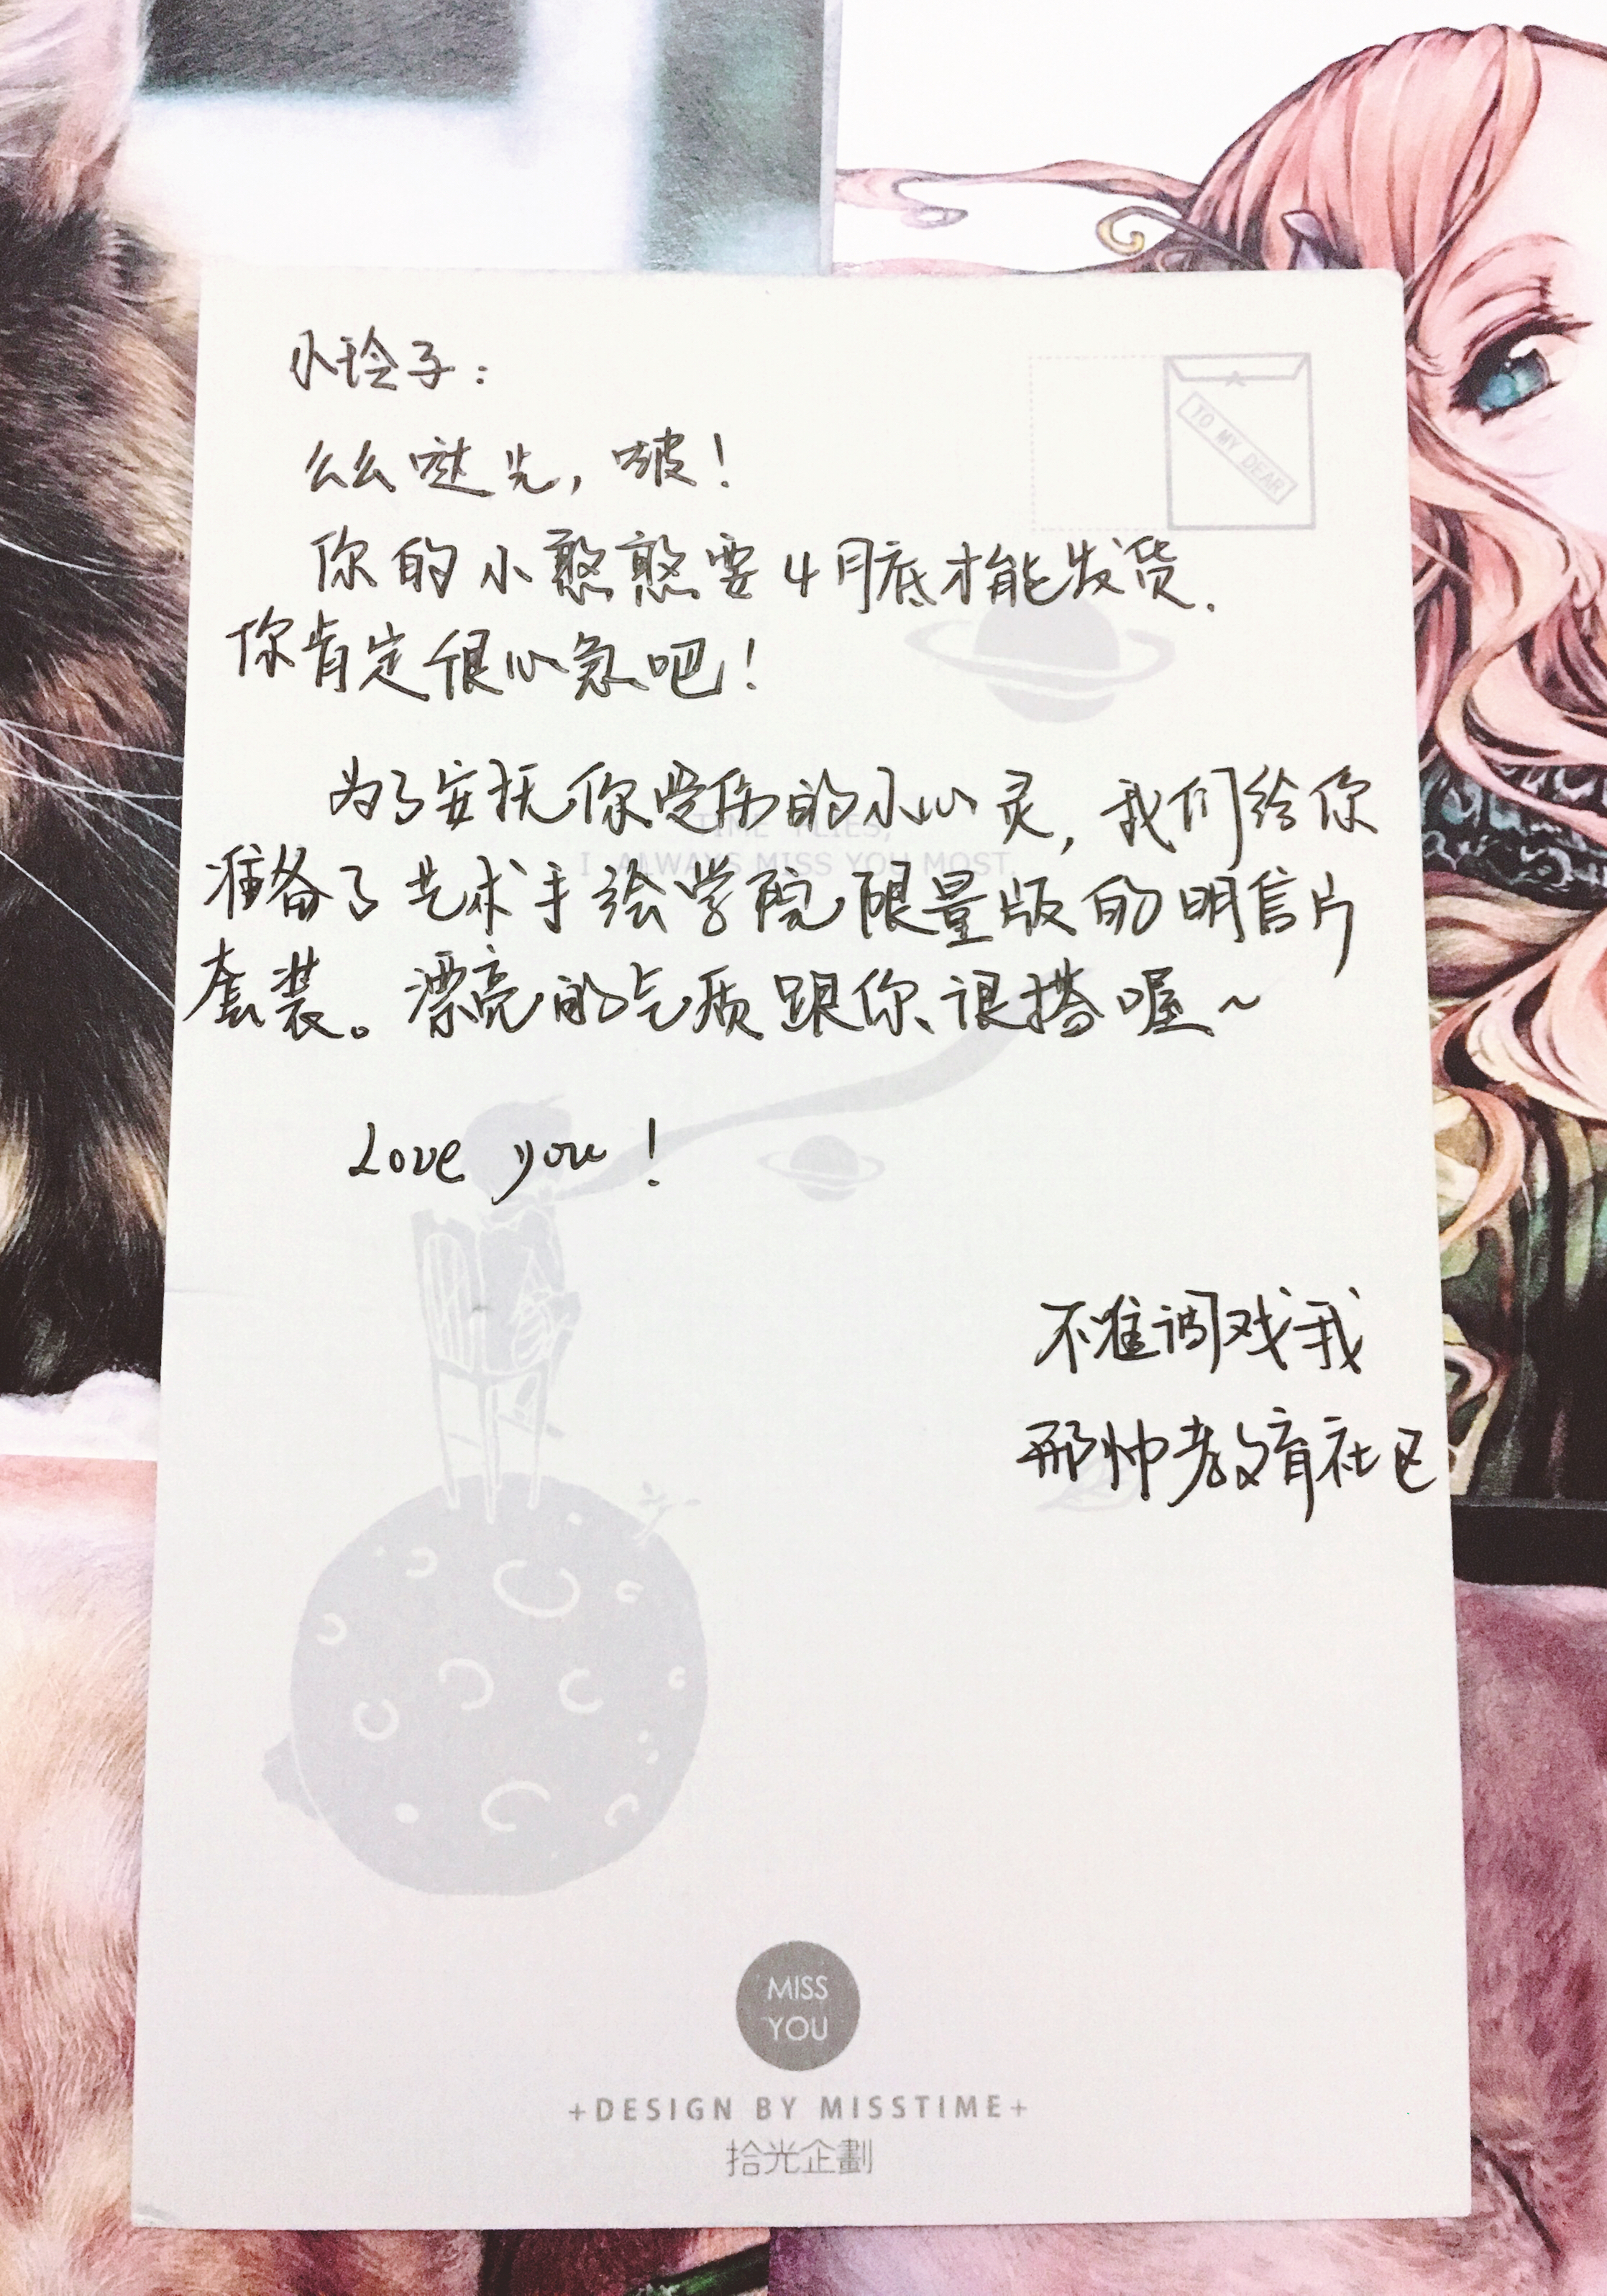 小玲子:
TO MY DEAR
么么哒先,啵!
你的小憨憨要4月底才能发货.
你肯定很心急吧!
为了安抚你受伤的小心灵,我们给你
TIME FLIES,
I ALWAYS MISS YOU MOST.
准备了艺术手绘学院限量版的明信片
套装。漂亮的气质跟你很搭喔~
Love you!
不准调戏我
邢帅教育社区
MISS
YOU
+DESIGN BY MISSTIME+
拾光企劃